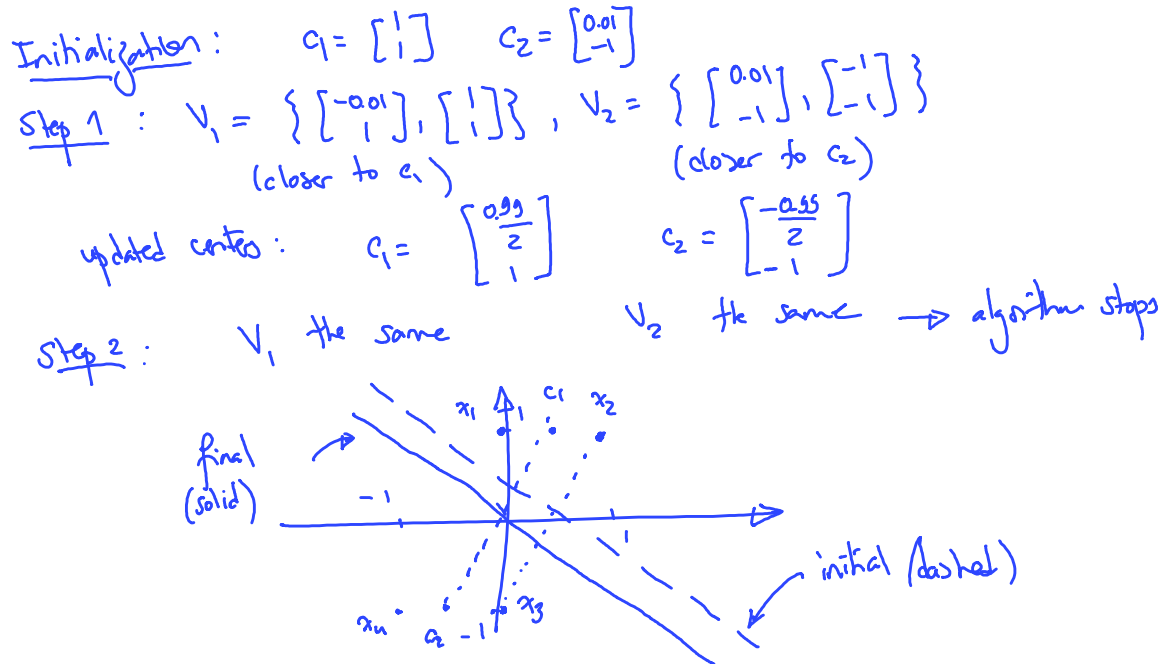 Initialization: c₁ = [1 1] c₂ = [0.01 -1]
Step 1 : V₁ = { [-0.01 1], [1 1] }, V₂ = { [0.01 -1], [-1 -1] }
(closer to c₁) (closer to c₂)
updated centers: c₁ = [0.99/2 1] c₂ = [-0.99/2 -1]
Step 2 : V₁ the same V₂ the same → algorithm stops
x₁ 1 c₁ x₂
final
(solid)
-1
1
initial (dashed)
x₄ c₂ -1 x₃